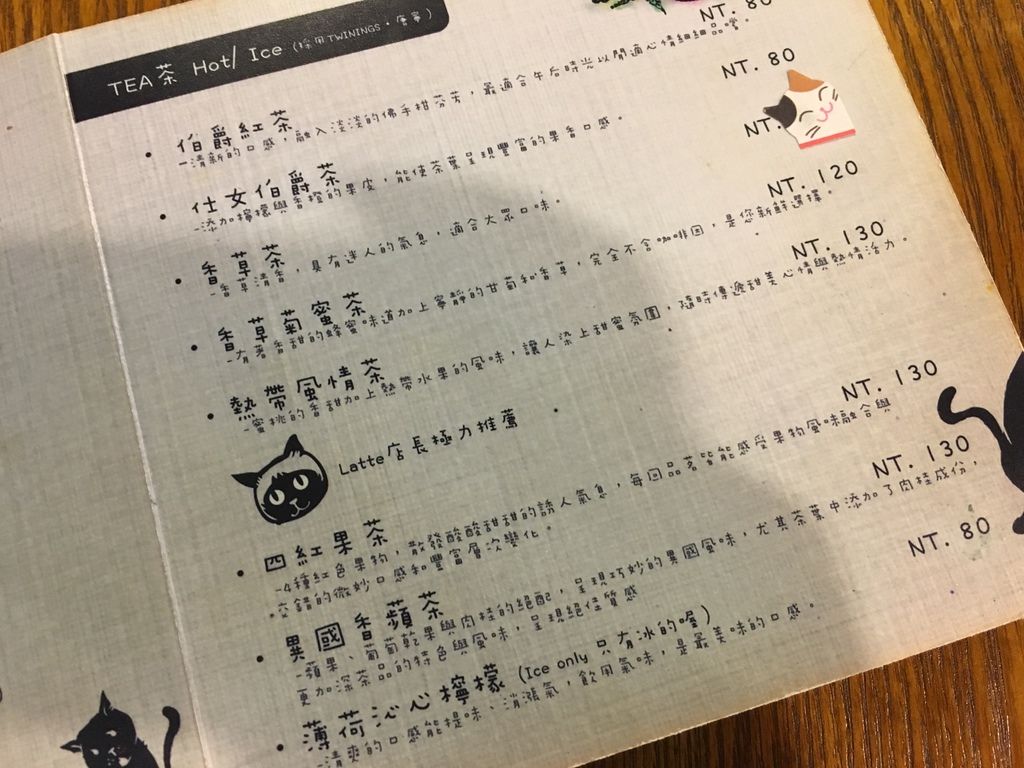 TEA茶 Hot/ Ice (採用TWININGS·唐寧)
• 伯爵紅茶 NT. 80
-清新的口感，融入淡淡的佛手柑芬芳，最適合午后時光以閒適心情細細品嚐。
• 仕女伯爵茶 NT. 80
-添加檸檬與香橙的果皮，能使茶葉呈現豐富的果香口感。
• 香草茶 NT.
-香草清香，具有迷人的氣息，適合大眾口味。
• 香草菊蜜茶 NT. 120
-有著香甜的蜂蜜味道加上寧靜的甘菊和香草，完全不含咖啡因，是您新鮮選擇。
• 熱帶風情茶 NT. 130
-蜜桃的香甜加上熱帶水果的風味，讓人染上甜蜜氛圍，隨時傳遞甜美心情與熱情活力。
Latte店長極力推薦
• 四紅果茶 NT. 130
-4種紅色果物，散發酸酸甜甜的誘人氣息，每回品茗皆能感受果物風味融合與
交錯的微妙口感和豐富層次變化。
• 異國香蘋茶 NT. 130
-蘋果、葡萄乾果與肉桂的絕配，呈現巧妙的異國風味，尤其茶葉中添加了肉桂成份，
更加深茶品的特色與風味，呈現絕佳質感
• 薄荷沁心檸檬 (Ice only 只有冰的喔) NT. 80
-清爽的口感能提味、消漲氣，飲用氣味，是最美味的口感。